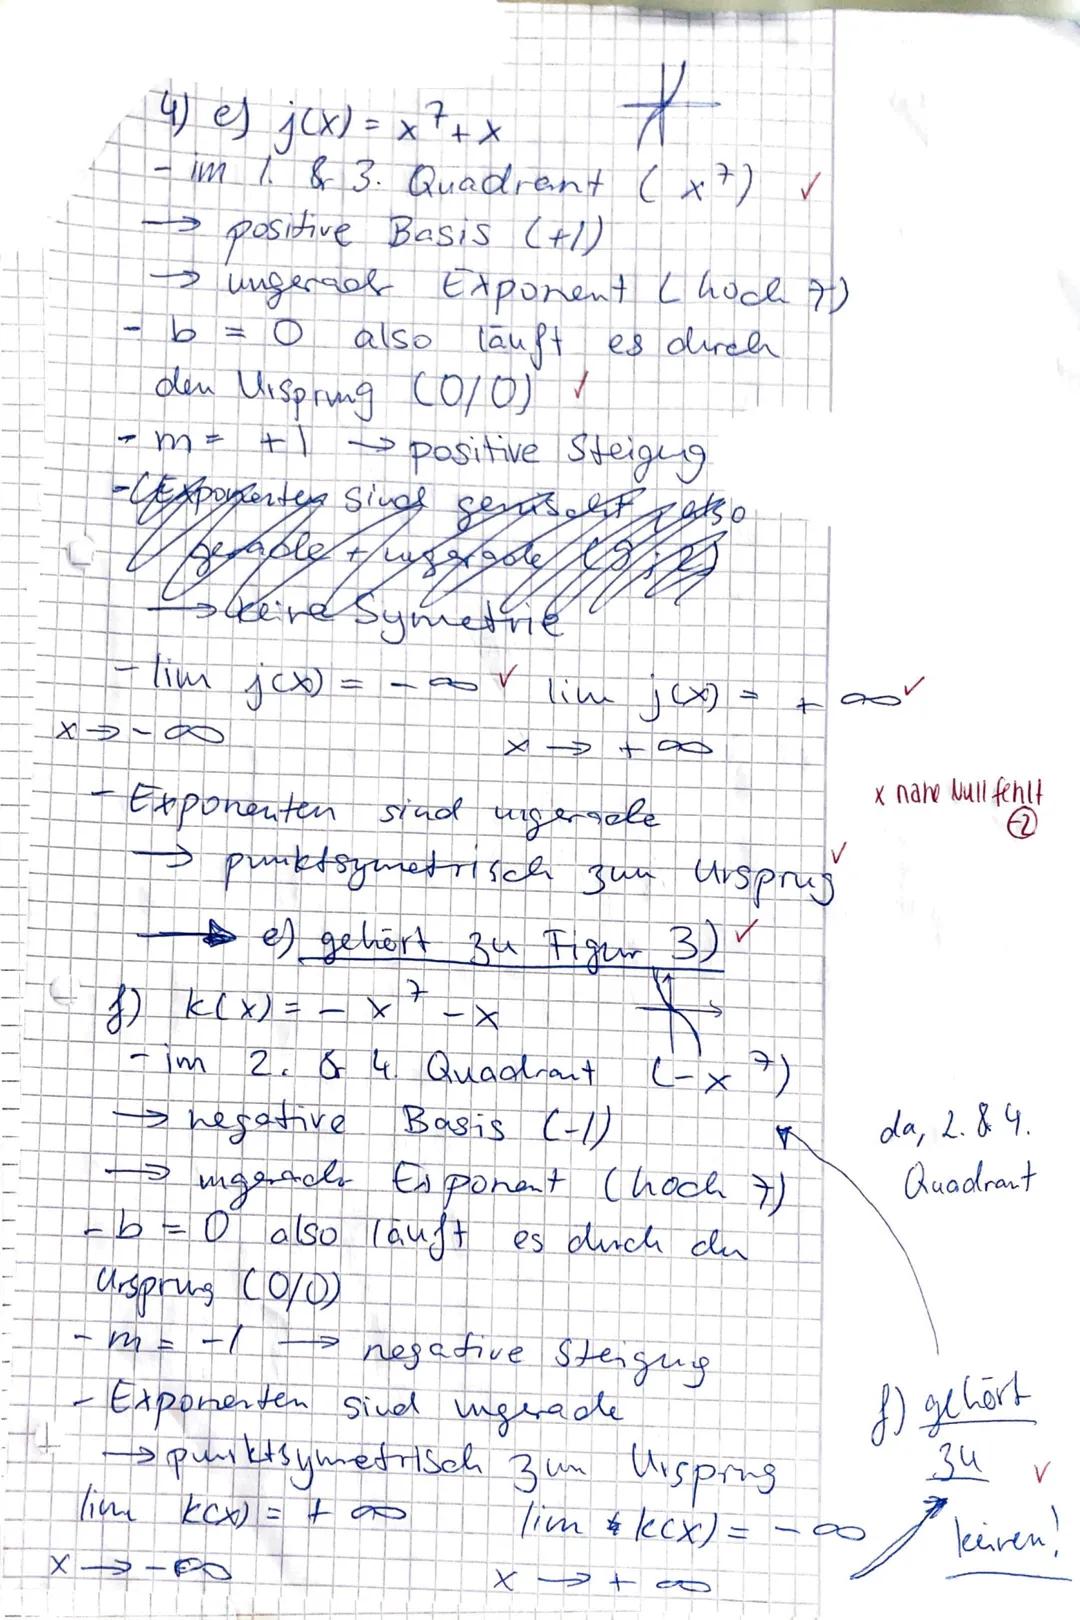 4) e) j(x) = x⁷ + x
- im 1. & 3. Quadrant (x⁷) ✓
→ positive Basis (+1)
→ ungerade Exponent (hoch 7)
- b = 0 also läuft es durch
den Ursprung (0/0) ✓
- m = +1 → positive Steigung
- (Exponenten sind gemischt, also
gerade + ungerade
→ keine Symetrie
- lim j(x) = - ∞ ✓ lim j(x) = + ∞ ✓
x → - ∞ x → + ∞
x nahe Null fehlt
-2
- Exponenten sind ungerade
→ punktsymetrisch zum Ursprug ✓
→ e) gehört zu Figur 3) ✓
f) k(x) = - x⁷ - x
- im 2. & 4. Quadrant (-x⁷)
→ negative Basis (-1)
→ ungerade Exponent (hoch 7)
- b = 0 also läuft es durch den
Ursprung (0/0)
- m = -1 → negative Steigung
- Exponenten sind ungerade
→ punktsymetrisch zum Ursprung
lim k(x) = + ∞ lim k(x) = - ∞
x → - ∞ x → + ∞
da, 2. & 4.
Quadrant
f) gehört
zu ✓
keinen!